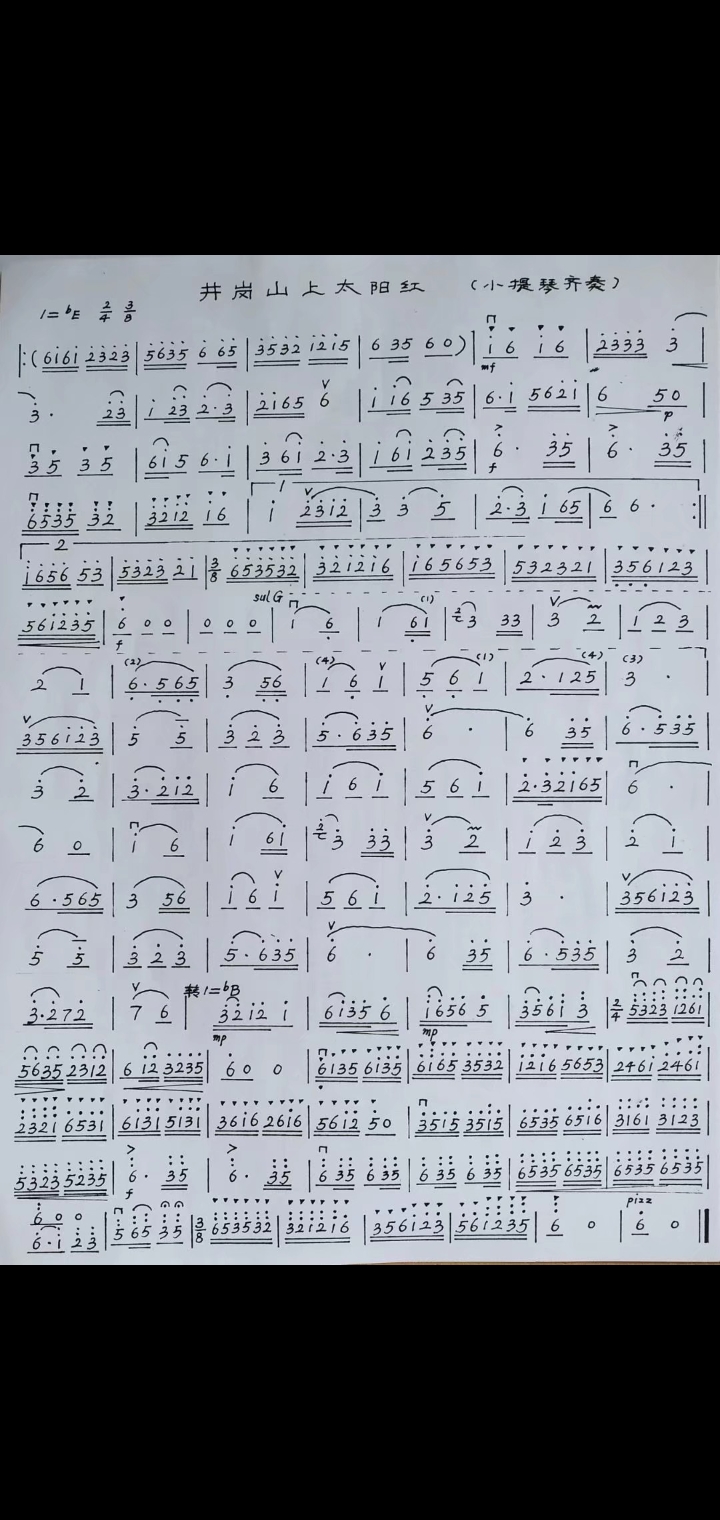 井岗山上太阳红 (小提琴齐奏)
1=bE 2/4 3/8
|:(6161 2323|5635 6 65|3532 1215|6 35 6 0)|1 6 1 6|2333 3|
mf
3· 23|1 23 2·3|2165 6|1 16 5 35|6·1 5621|6 50|
p
35 35|61 5 6·1|3 61 2·3|1 61 2 35|6· 35|6· 35|
f
1
6535 32|3212 16|1 2312|3 3 5|2·3 1 65|6 6· :||
2
1656 53|5323 21|3/8 653532|321216|165653|532321|356123|
sul G (1)
561235|6 0 0|0 0 0|1 6|1 61|3 33|3 2|1 2 3|
f
(2) (4) (1) (4) (3)
2 1|6·565|3 56|1 6 1|5 6 1|2·125|3 ·|
356123|5 5|3 2 3|5·635|6 ·|6 35|6·535|
3 2|3·212|1 6|1 6 1|5 6 1|2·32165|6 ·|
6 0|1 6|1 61|3 33|3 2|1 2 3|2 1|
6·565|3 56|1 6 1|5 6 1|2·125|3 ·|356123|
5 5|3 2 3|5·635|6 ·|6 35|6·535|3 2|
转1=bB
3·272|7 6|3212 1|6135 6|1656 5|3561 3|2/4 5323 1261|
mp mp
5635 2312|6 12 3235|6 0 0|6135 6135|6165 3532|1216 5653|2461 2461|
2321 6531|6131 5131|3616 2616|5612 50|3515 3515|6535 6516|3161 3123|
5323 5235|6· 35|6· 35|6 35 6 35|6 35 6 35|6535 6535|6535 6535|
f
pizz
6 0 0
6·1 23|5 65 35|3/8 653532|321216|356123|561235|6 0|6 0||